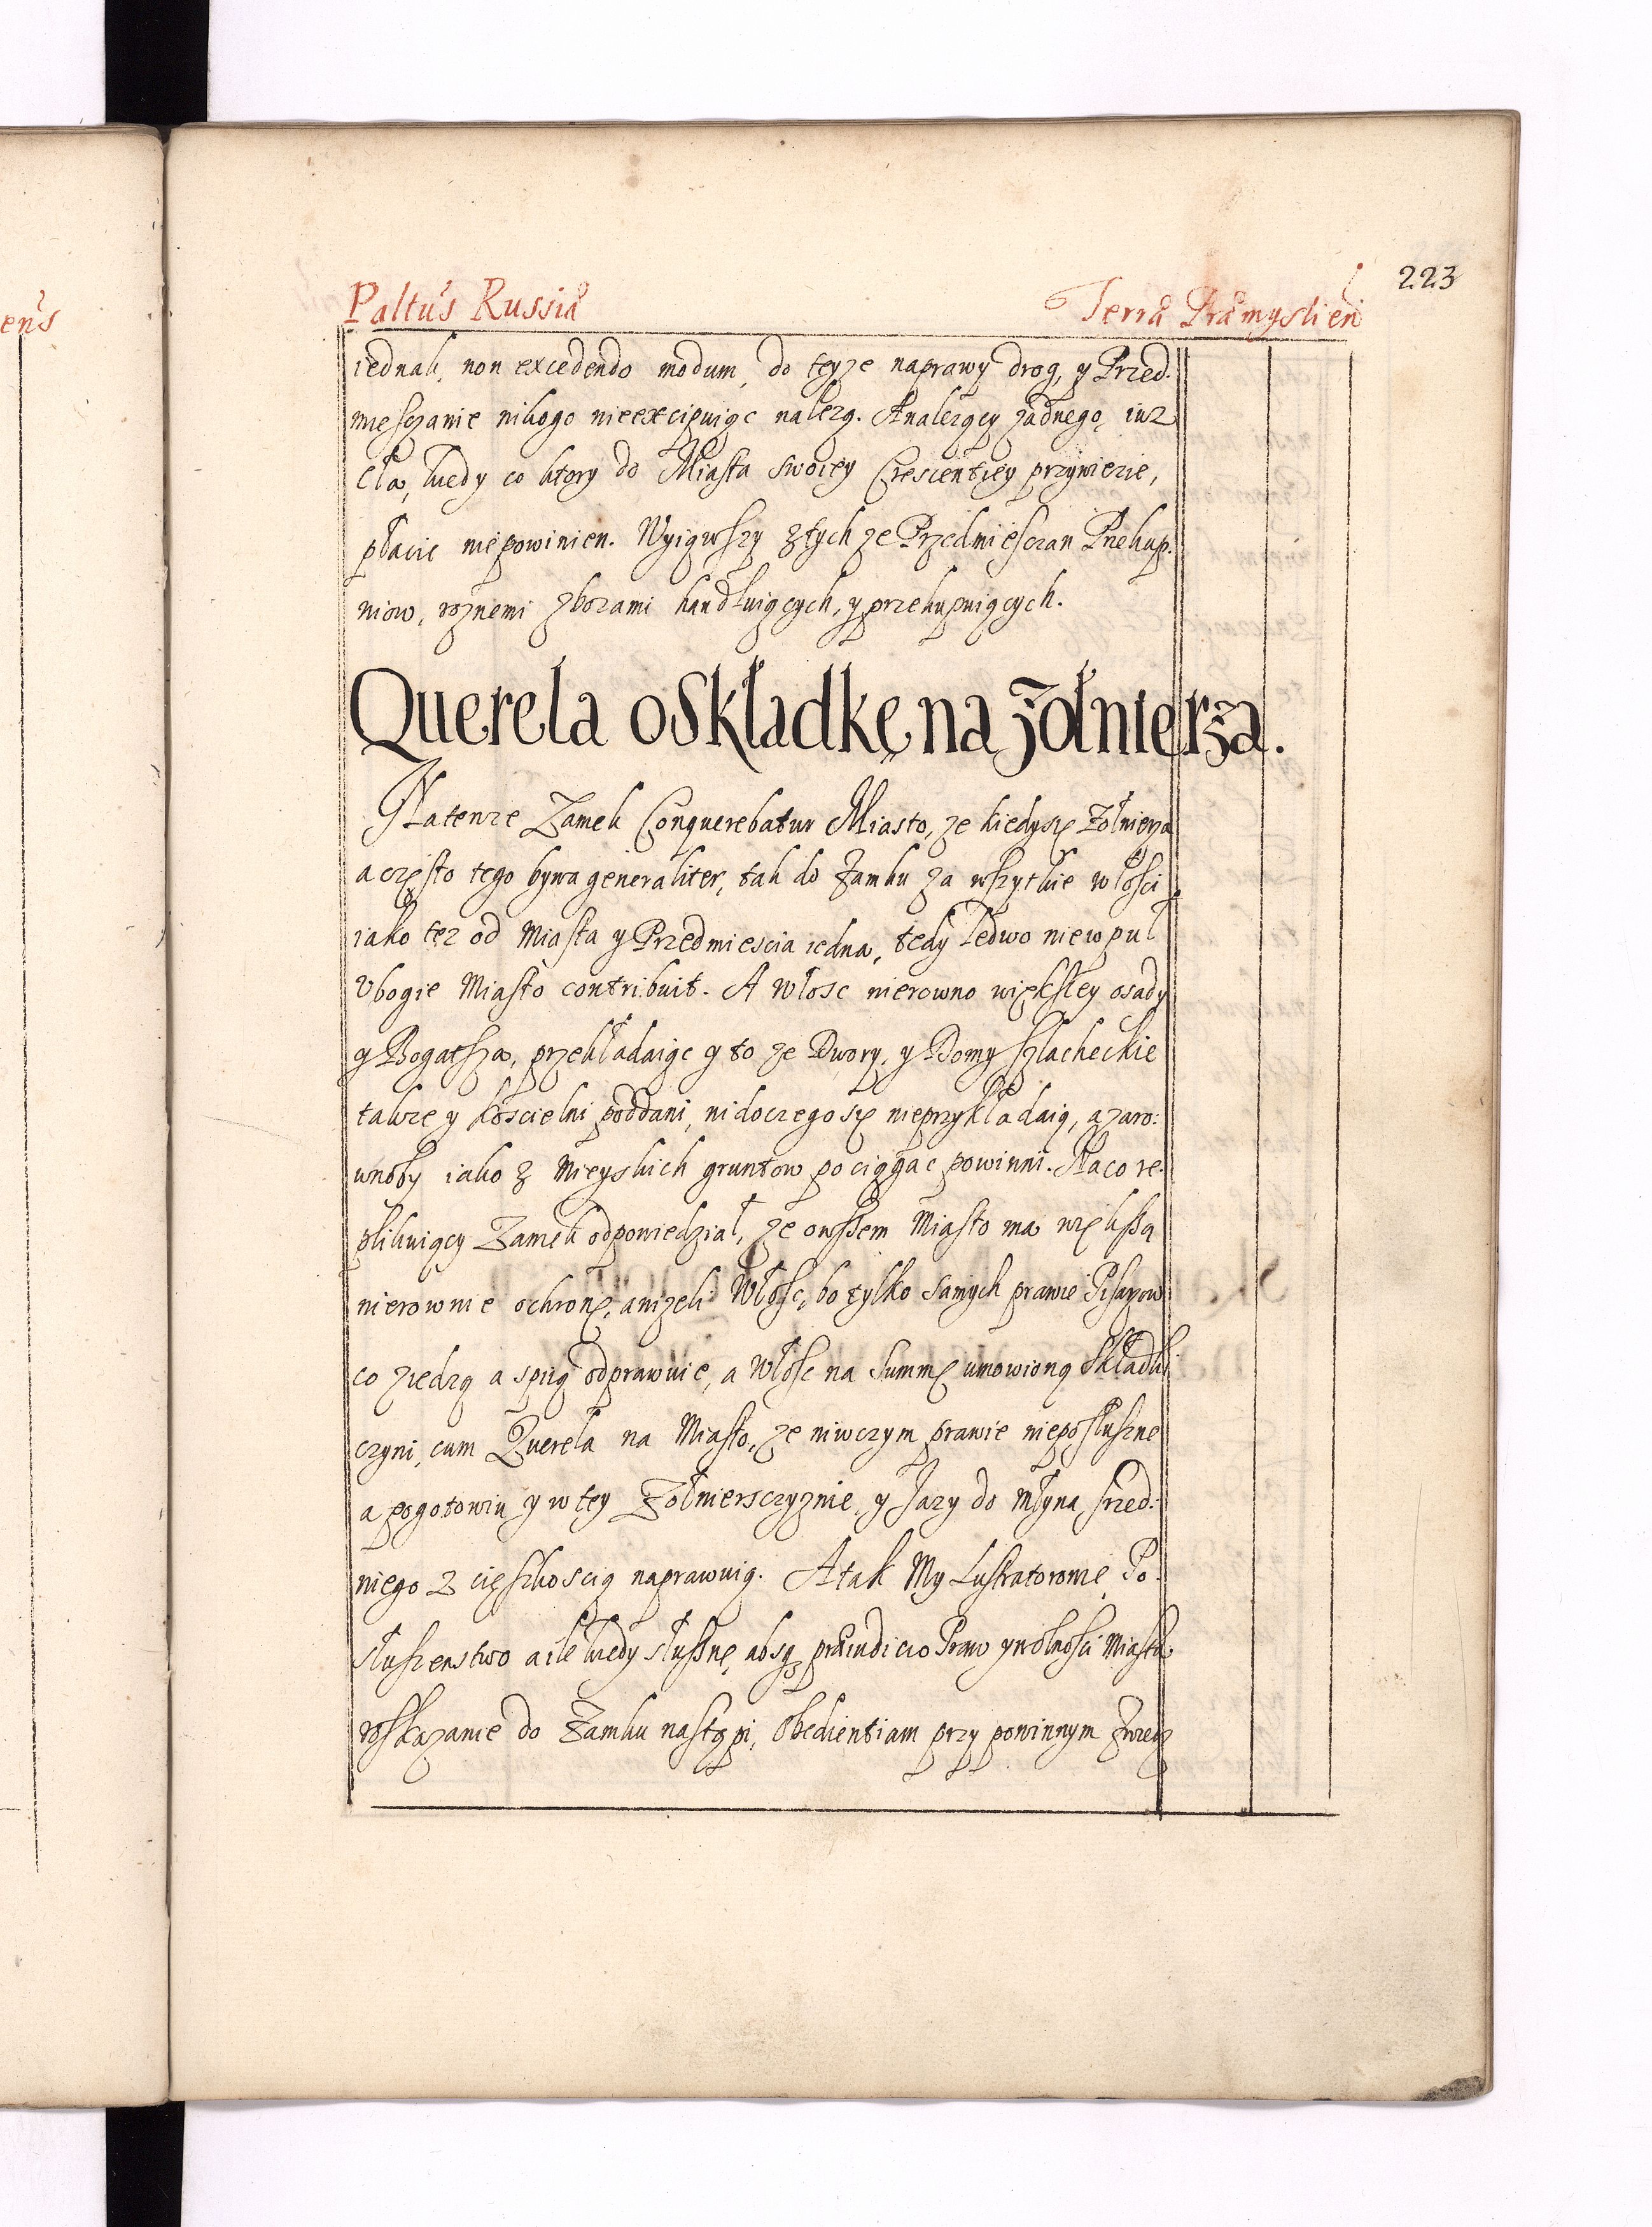 ens
223
Paltus Russiæ Terræ Præmyslien
iednak, non excedendo modum, do teyze naprawy drog, y Przed-
miesczanie nikogo nieexcipuiąc nalezą. A nalezący zadnego iuz
cla, kiedy co ktory do Miasta swoiey Crescentiey przywiezie,
płacic niepowinien. Wyiąwszy z tych ze Przedmiesczan Przekup-
niow, roznemi zbozami handluiących, y przekupuiących.
Querela o Składkę na żołnierza.
Na tenze Zamek Conquerebatur Miasto, ze kiedy się Zołnierza
a często tego bywa generaliter, tak do Zamku za wszytkie włości
iako tez od Miasta y Przedmiescia iedna, tedy ledwo nie w puł
Vbogie Miasto contribuit. A Włosc nierowno większey osady
y Bogatsza, przekładaiąc y to ze Dwory, y Domy szlacheckie
takze y kościelni poddani, ni do czego się nieprzykładaią, a zaro:
wnoby iako z Mieyskich gruntow pociągac powinni. Na co re-
plikuiący Zamek odpowiedział, ze owszem Miasto ma większą
nierownie ochronę, anizeli Włosc, bo tylko samych prawie Pisarzow
co ziedzą a spiią odprawuie, a Włosc na Summę umowioną składki
czyni, cum Querela na Miasto, ze niwczym prawie nieposłuszne
a pogotowiu y w tey Zołniersczyznie, y Jazy do młyna sred:
niego z cięszkoscią naprawuią. A tak My Lustratorowie Po-
słuszenstwo a ile kiedy słuszne, absq præiudicio Praw y wolności Miasta
roskazanie do Zamku nastąpi, Obedientiam przy powinnym zwierz